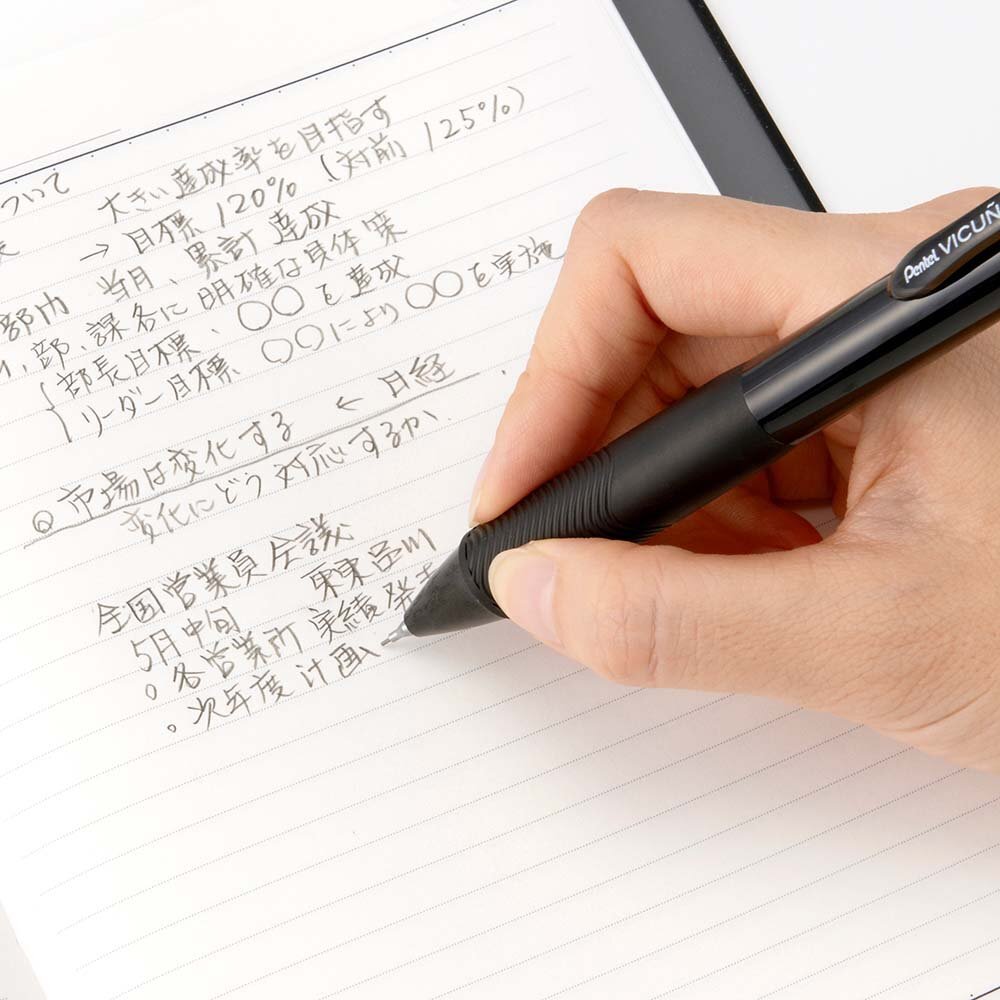 ついて
大きい達成率を目指す
→ 目標 120% (対前 125%)
部内 当月、累計達成
部、課各に明確な具体策
部長目標、○○を達成
リーダー目標 ○○により○○を実施
◎ 市場は変化する ← 日経
変化にどう対応するか、
全国営業員会議
5月中旬 東京品川
○ 各営業所 実績発
○ 次年度計画、
Pentel VICUÑ